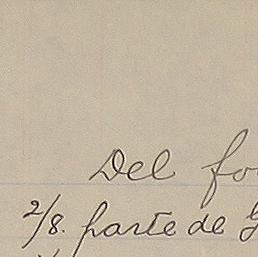 Del fo
2/8. parte de G